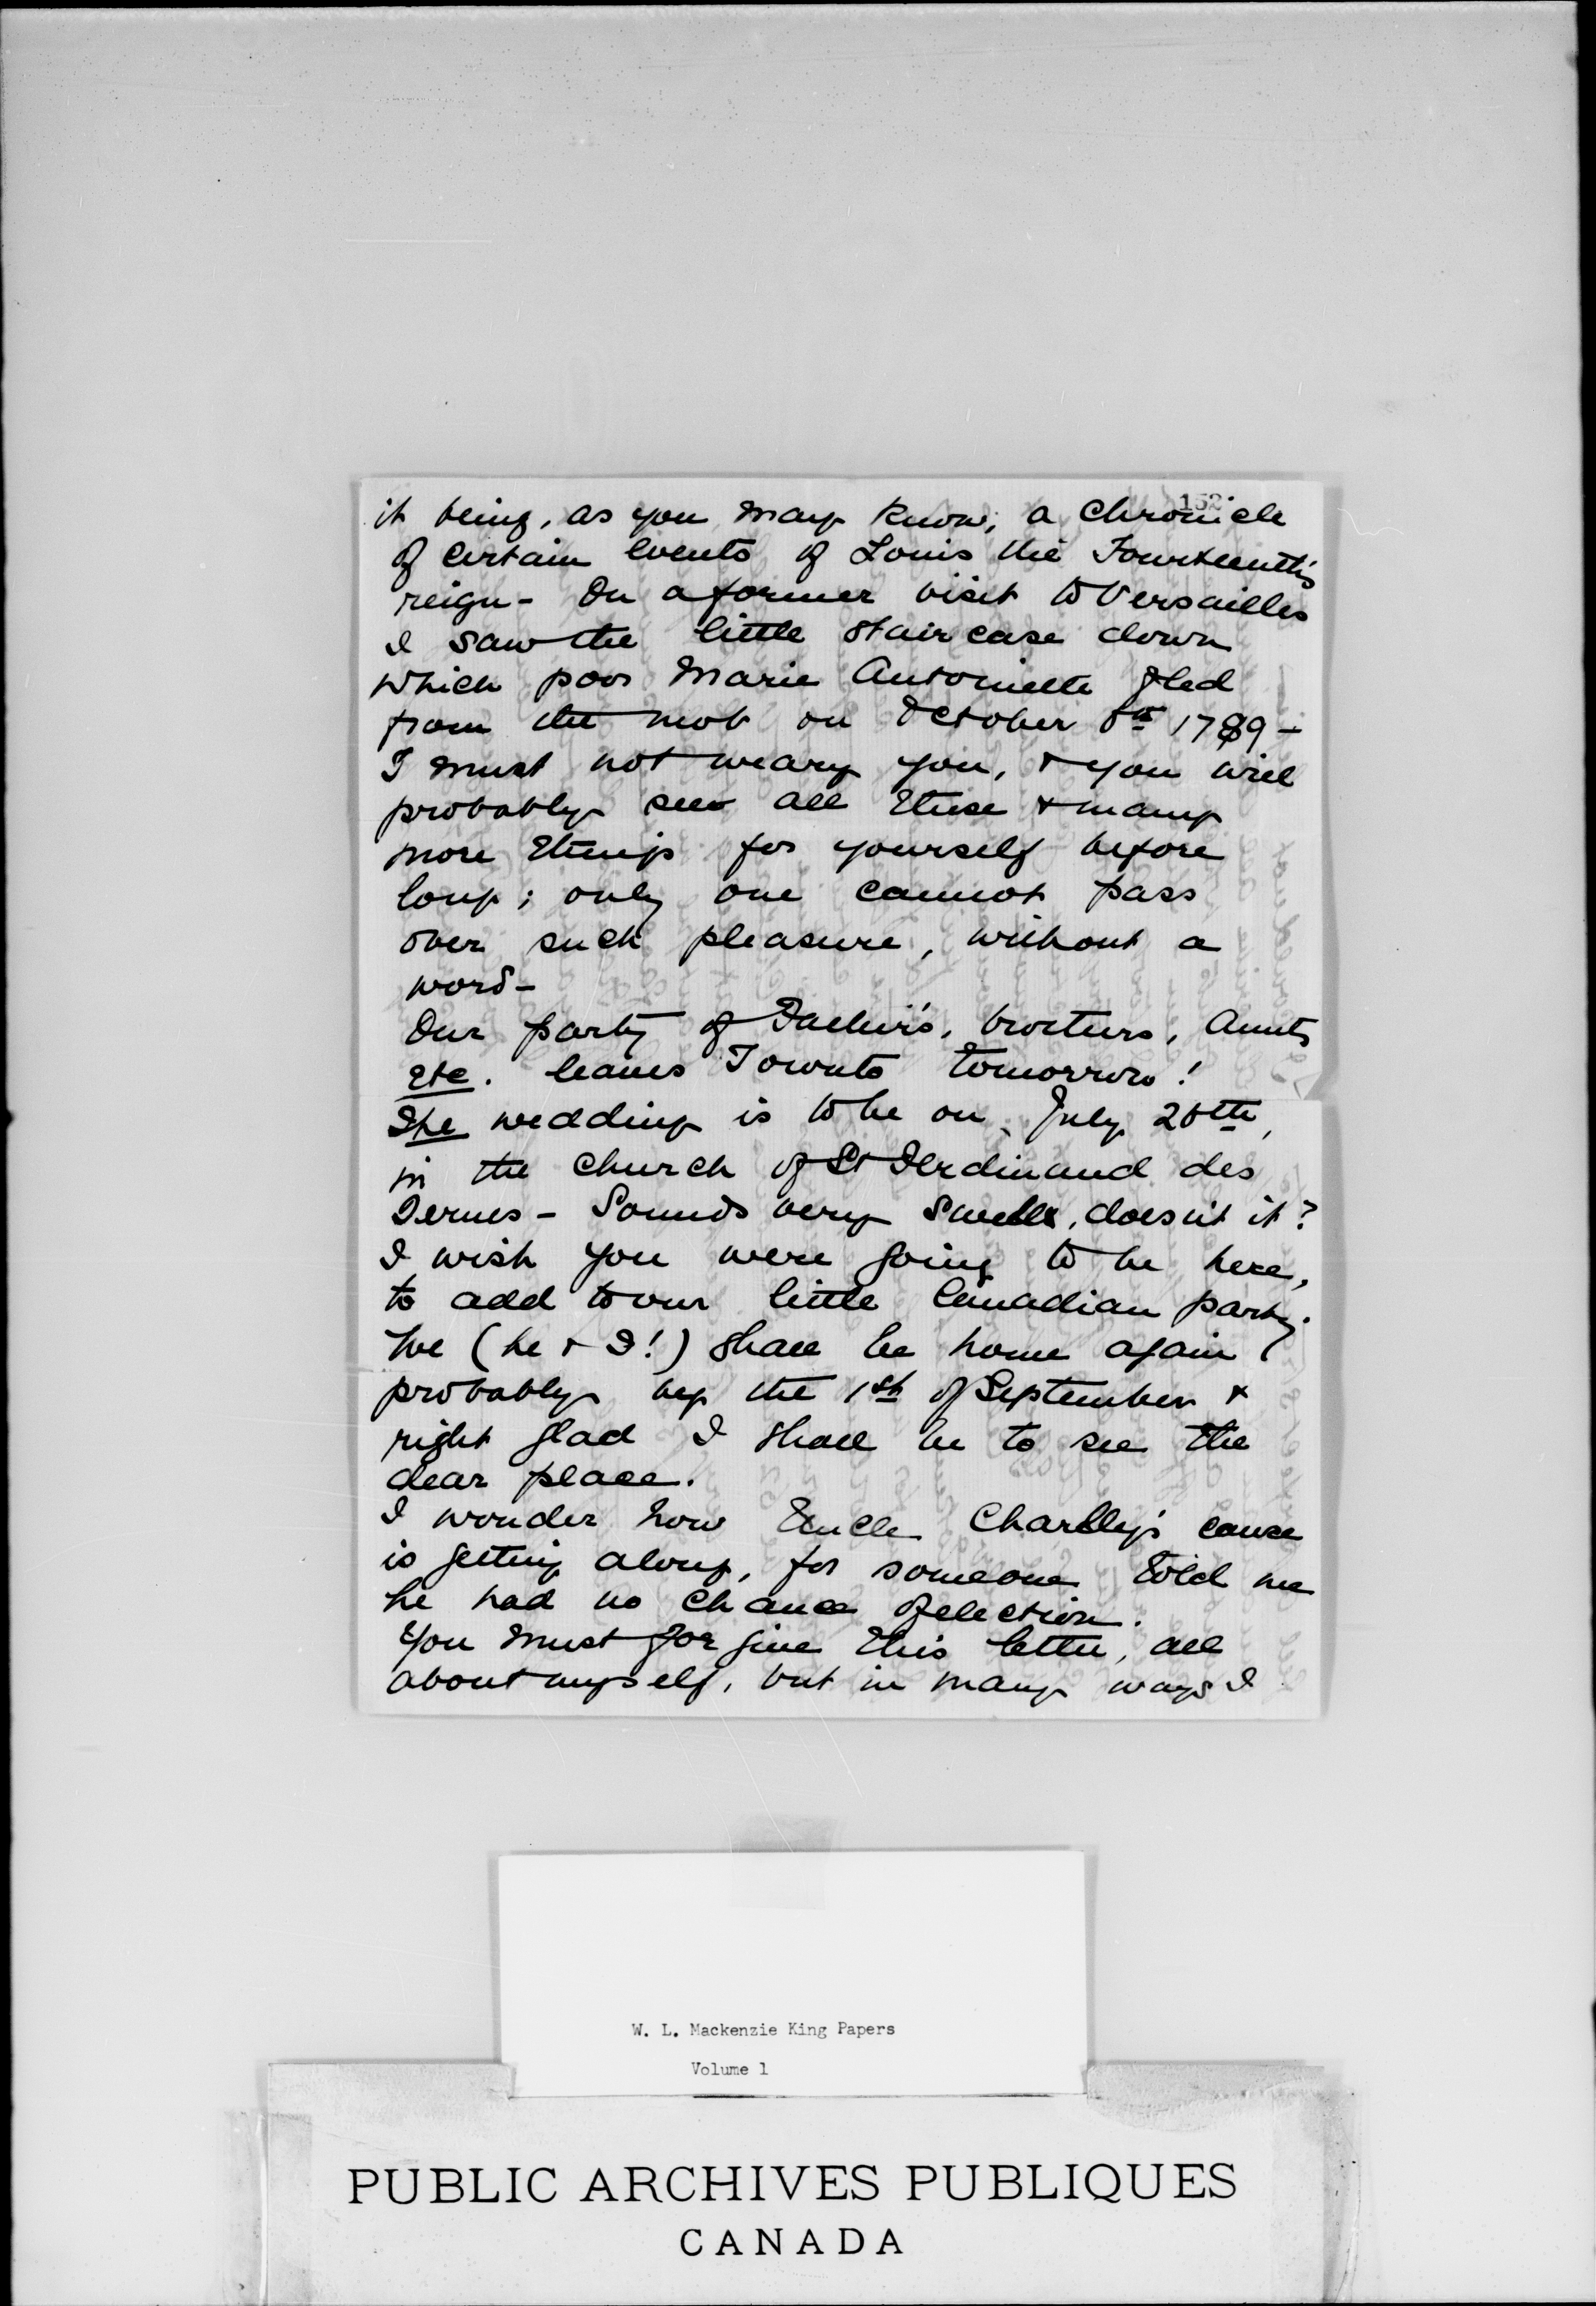 152
it being, as you may know, a chronicle
of certain events of Louis the Fourteenth's
reign - On a former visit to Versailles
I saw the little staircase down
which poor Marie Antoinette fled
from the mob on October 5th 1789 -
I must not weary you, & you will
probably see all these & many
more things for yourself before
long; only one cannot pass
over such pleasure, without a
word -
Our party of Father's, brothers, Aunts
etc. leaves Toronto tomorrow!
The wedding is to be on July 25th,
in the church of St Ferdinand des
Ternes - Sounds very swell, doesn't it?
I wish you were going to be here,
to add to our little Canadian party.
We (he & I!) shall be home again
probably by the 1st of September &
right glad I shall be to see the
dear place.
I wonder how Uncle Charlley's cause
is getting along, for someone told me
he had no chance of election.
You must forgive this letter, all
about myself, but in many ways I
W. L. Mackenzie King Papers
Volume 1
PUBLIC ARCHIVES PUBLIQUES
CANADA